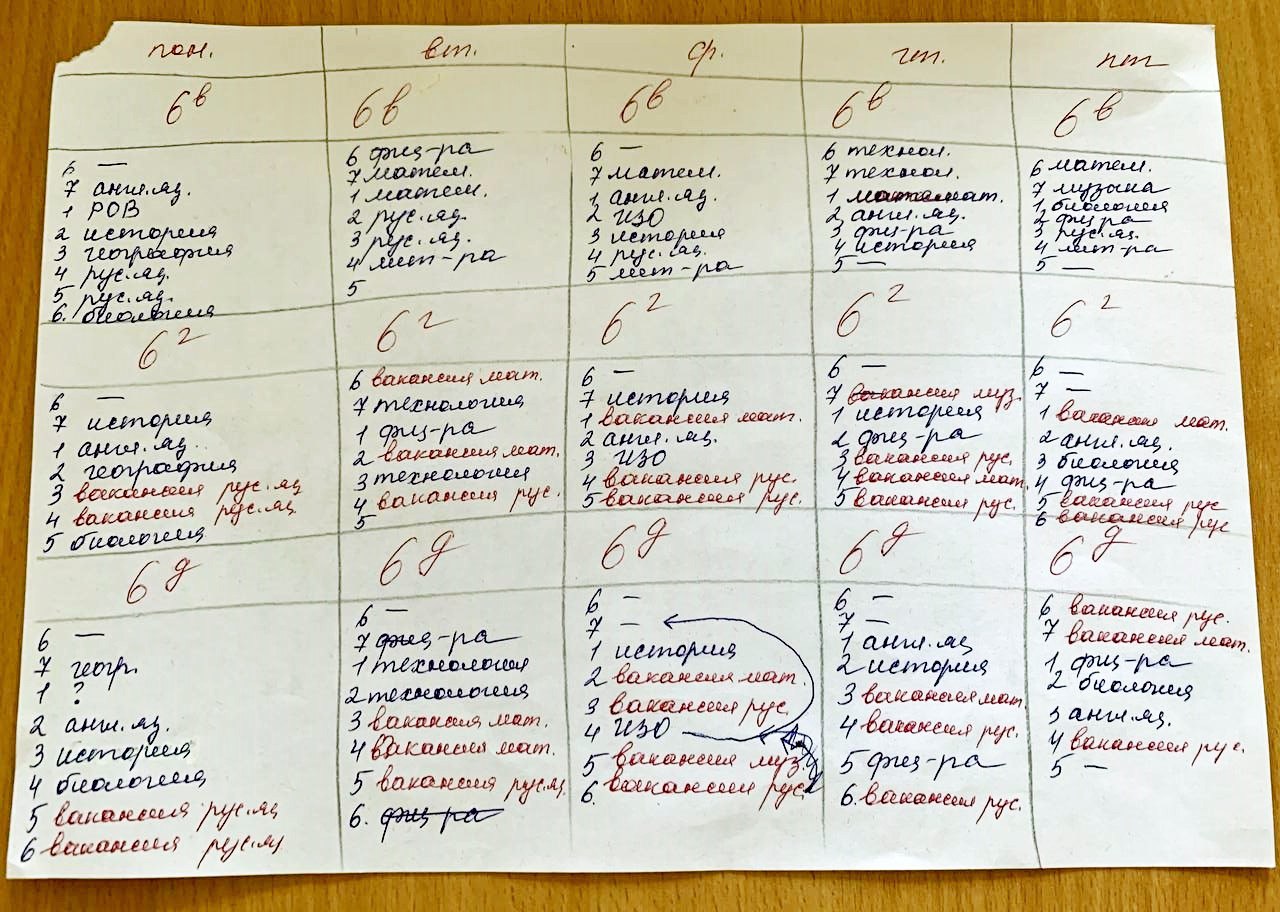 пон.
вт.
ср.
чт.
пт
6в
6 —
7 англ.яз.
1 РОВ
2 история
3 география
4 рус.яз.
5 рус.яз.
6. биология
6в
6 физ-ра
7 матем.
1 матем.
2 рус.яз.
3 рус.яз.
4 лит-ра
5
6в
6 —
7 матем.
1 англ.яз.
2 ИЗО
3 история
4 рус.яз.
5 лит-ра
6в
6 технол.
7 технол.
1 мат.
2 англ.яз.
3 физ-ра
4 история
5 —
6в
6 матем.
7 музыка
1 биология
2 физ ра
3 рус.яз.
4 лит-ра
5 —
6г
6 —
7 история
1 англ.яз.
2 география
3 вакансия рус.яз
4 вакансия рус.яз
5 биология
6г
6 вакансия мат.
7 технология
1 физ-ра
2 вакансия мат.
3 технология
4 вакансия рус.
5
6г
6 —
7 история
1 вакансия мат.
2 англ.яз.
3 ИЗО
4 вакансия рус.
5 вакансия рус.
6г
6 —
7 вакансия муз.
1 история
2 физ-ра
3 вакансия рус.
4 вакансия мат.
5 вакансия рус.
6г
6 —
7 —
1 вакансия мат.
2 англ.яз.
3 биология
4 физ-ра
5 вакансия рус
6 вакансия рус
6д
6 —
7 геогр.
1 ?
2 англ.яз.
3 история
4 биология
5 вакансия рус.яз
6 вакансия рус.яз
6д
6 —
7 физ-ра
1 технология
2 технология
3 вакансия мат.
4 вакансия мат.
5 вакансия рус.яз.
6. физ ра
6д
6 —
7 —
1 история
2 вакансия мат.
3 вакансия рус.
4 ИЗО
5 вакансия муз.
6. вакансия рус.
6д
6 —
7 —
1 англ.яз
2 история
3 вакансия мат.
4 вакансия рус.
5 физ-ра
6. вакансия рус.
6д
6 вакансия рус.
7 вакансия мат.
1 физ-ра
2 биология
3 англ.яз.
4 вакансия рус.
5 —